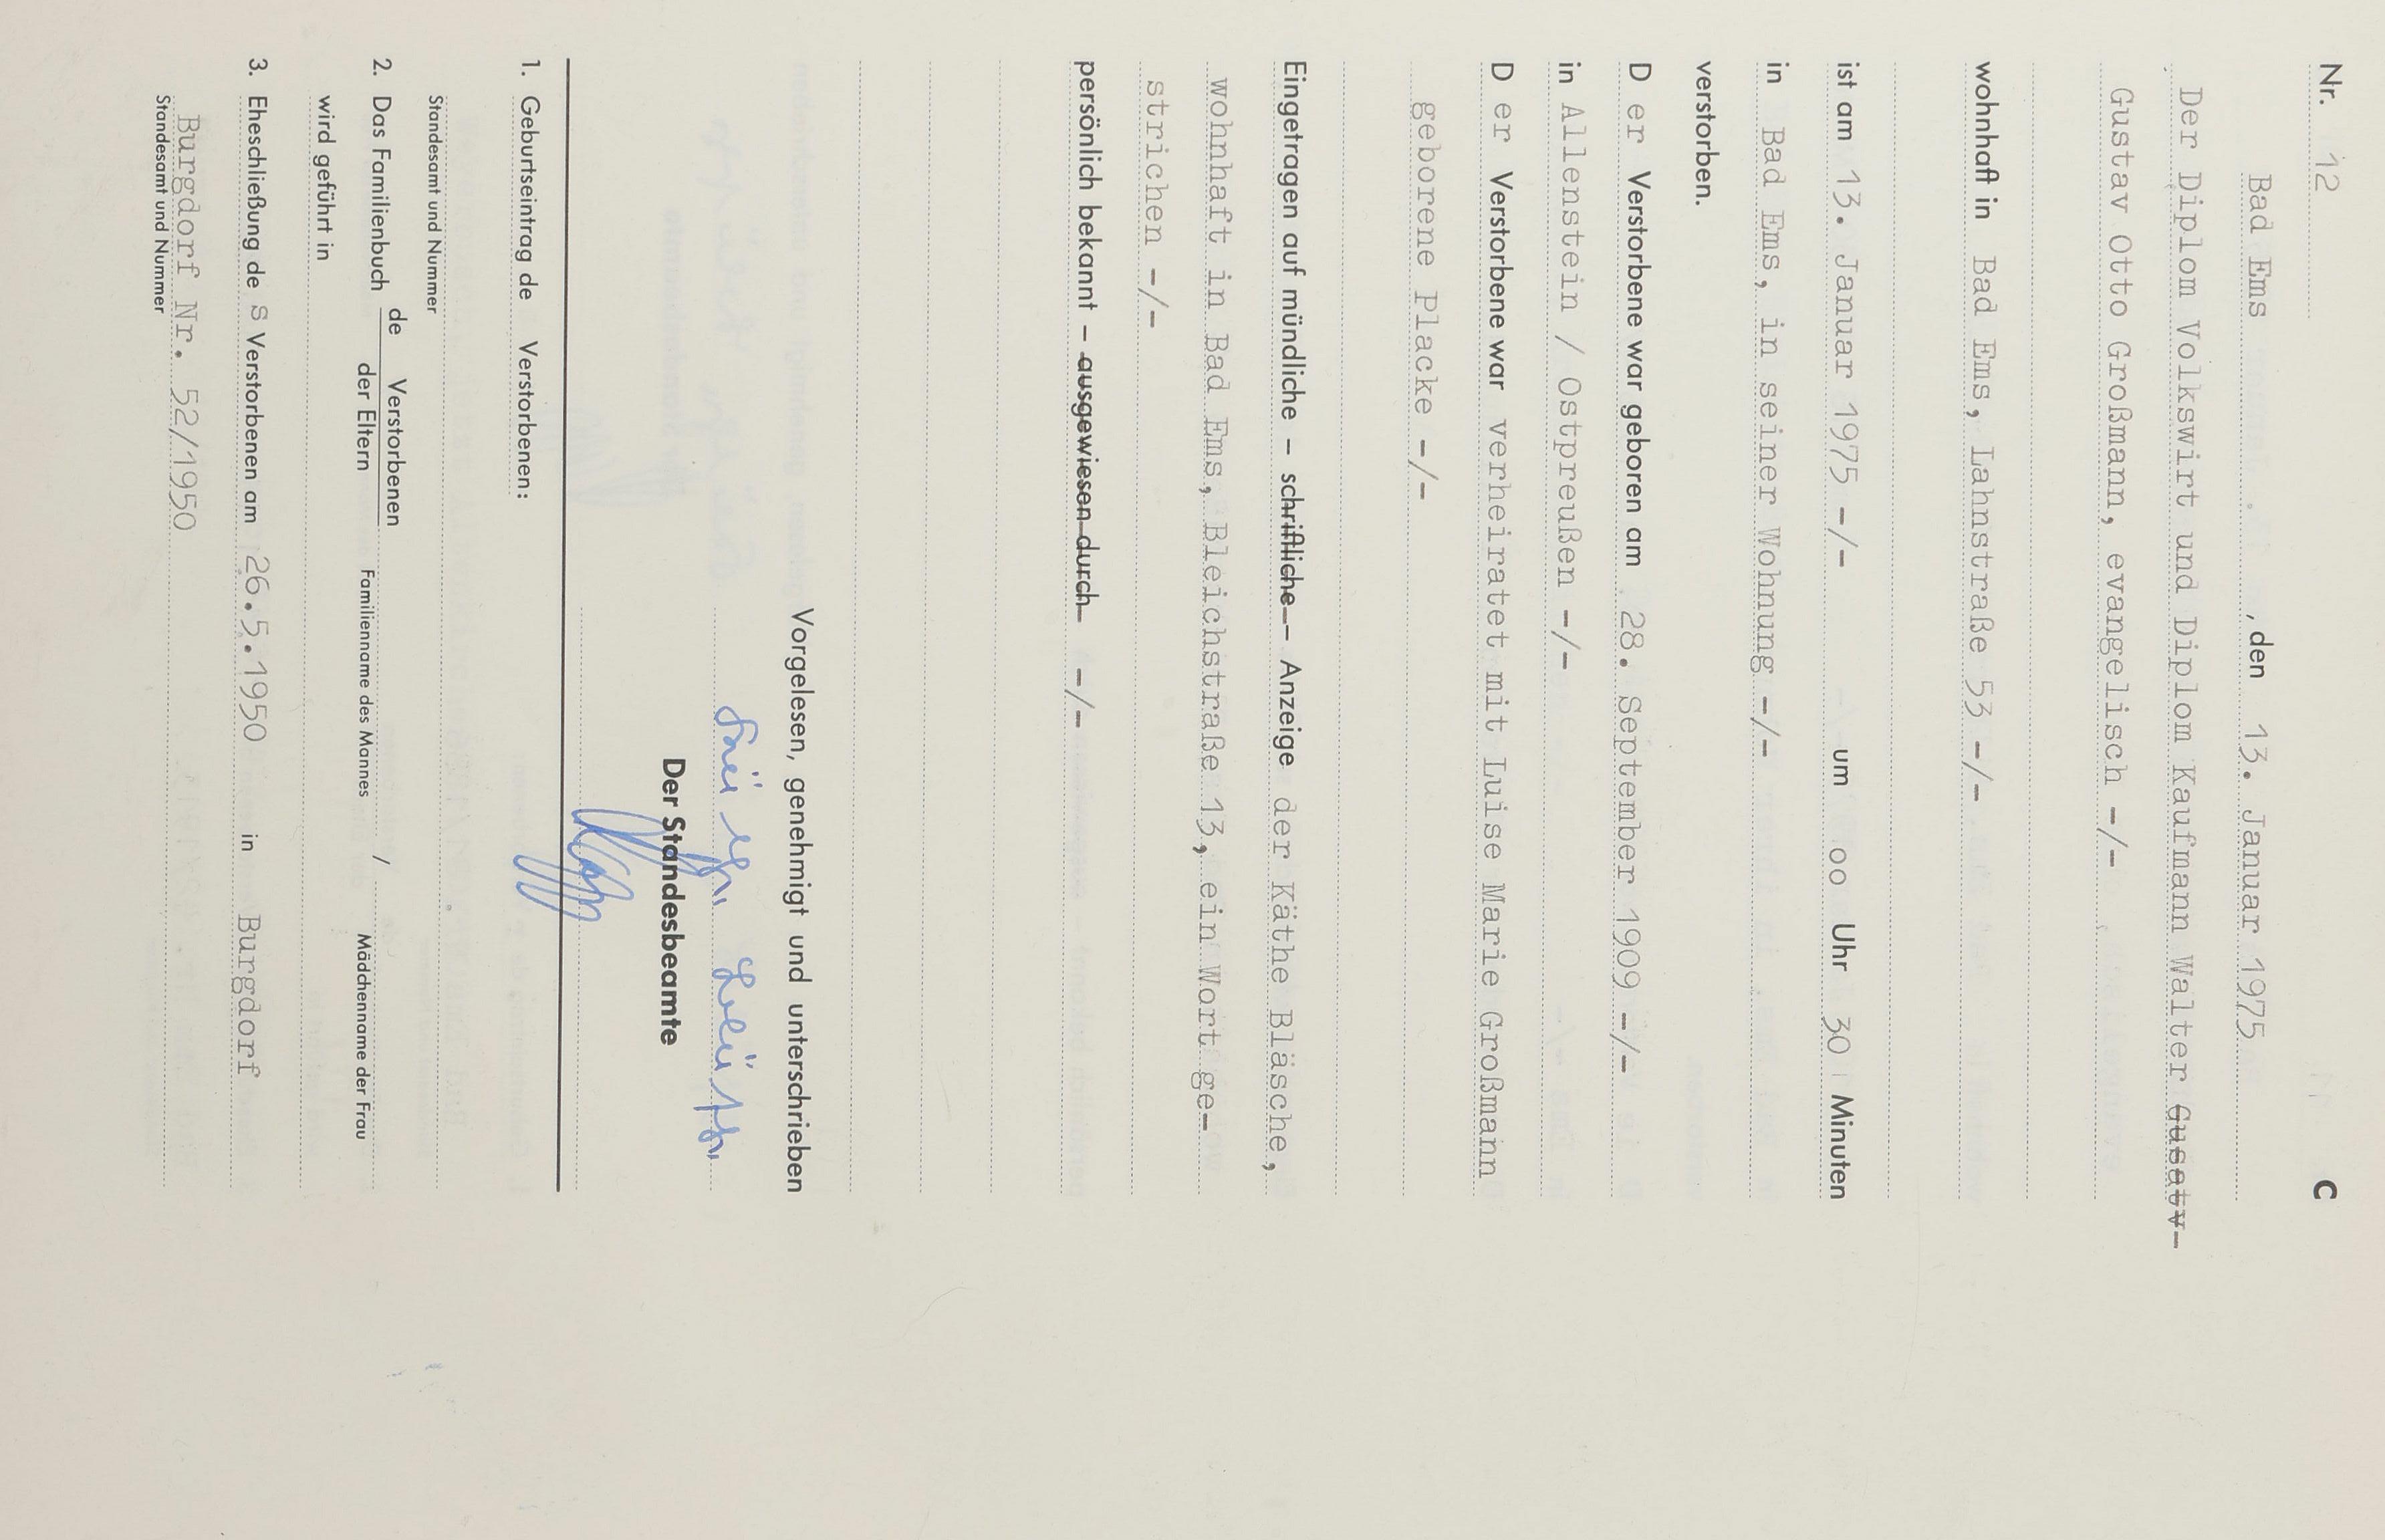 Nr. 12 C
Bad Ems, den 13. Januar 1975
Der Diplom Volkswirt und Diplom Kaufmann Walter Gusatv-
Gustav Otto Großmann, evangelisch -/-
wohnhaft in Bad Ems, Lahnstraße 53 -/-
ist am 13. Januar 1975 -/- um oo Uhr 30 Minuten
in Bad Ems, in seiner Wohnung -/-
verstorben.
D er Verstorbene war geboren am 28. September 1909 -/-
in Allenstein / Ostpreußen -/-
D er Verstorbene war verheiratet mit Luise Marie Großmann
geborene Placke -/-
Eingetragen auf mündliche – schriftliche – Anzeige der Käthe Bläsche,
wohnhaft in Bad Ems, Bleichstraße 13, ein Wort ge-
strichen -/-
persönlich bekannt – ausgewiesen durch -/-
Vorgelesen, genehmigt und unterschrieben
Der Standesbeamte
1. Geburtseintrag de Verstorbenen:
Standesamt und Nummer
2. Das Familienbuch de Verstorbenen / der Eltern
Familienname des Mannes Mädchenname der Frau
wird geführt in
3. Eheschließung de s Verstorbenen am 26.5.1950 in Burgdorf
Burgdorf Nr. 52/1950
Standesamt und Nummer